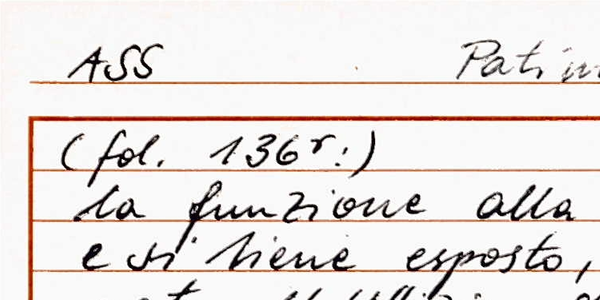 ASS
(fol. 136r:)
la funzione alla
e si tiene esposto,